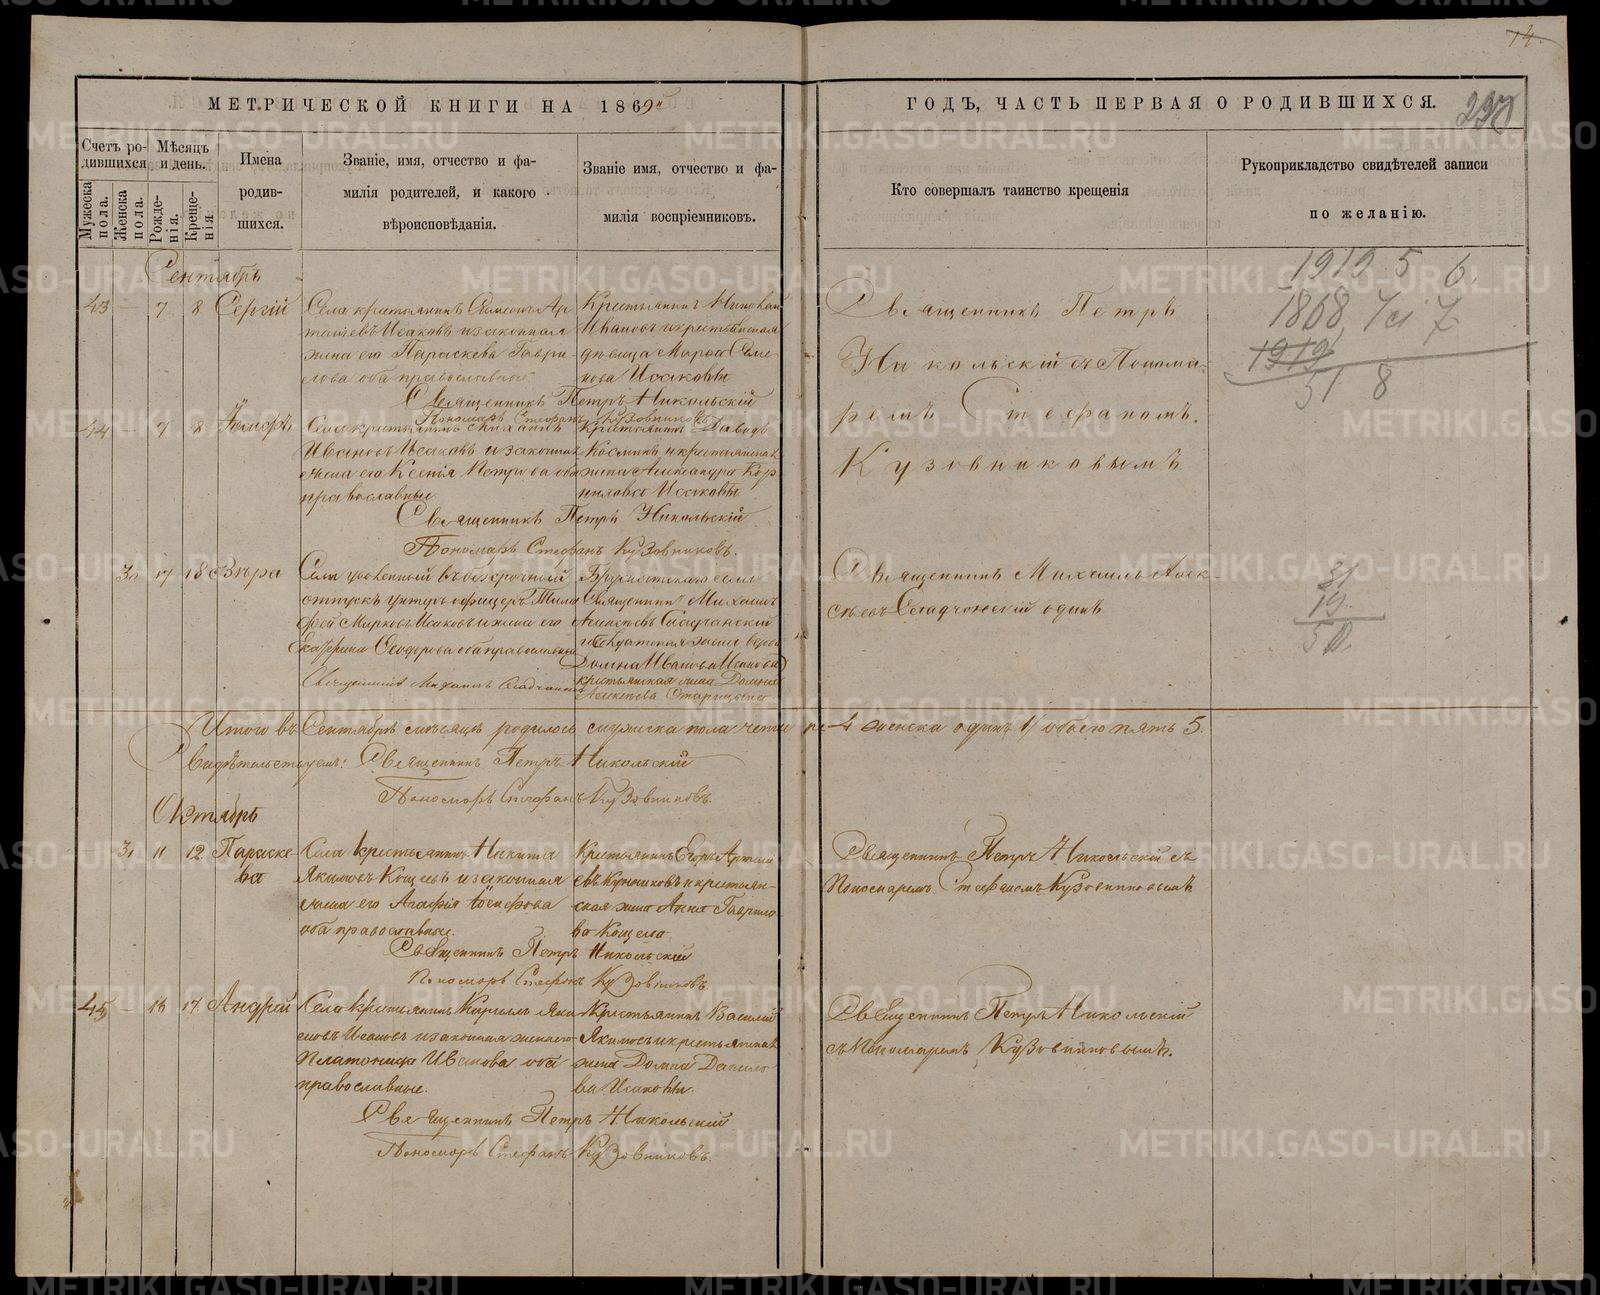 14.
МЕТРИЧЕСКОЙ КНИГИ НА 1869й
ГОДЪ, ЧАСТЬ ПЕРВАЯ О РОДИВШИХСЯ.
Счетъ ро-
дившихся
Мужеска пола.
Женска пола.
Мѣсяцъ и день.
Рожде-
нія.
Креще-
нія.
Имена
родив-
шихся.
Званіе, имя, отчество и фа-
милія родителей, и какого
вѣроисповѣданія.
Званіе имя, отчество и фа-
милія воспріемниковъ.
Кто совершалъ таинство крещенія
Рукоприкладство свидѣтелей записи
по желанію.
Сентябрь
43 — 7 8 Сергій
Села крестьянинъ Симеонъ Ар-
темьевъ Исаковъ и законная
жена его Параскева Гаври-
лова оба православные
Крестьянинъ
Ивановъ и крестьянская
дѣвица Марѳа Симе-
нова Исаковы
Священникъ Петръ Никольскій
Пономарь Стефанъ Кузовниковъ
Священникъ Петръ
Никольскій съ Понома-
ремъ Стефаномъ
Кузовниковымъ
1919 5 6
1868 7
1919
51 8
44 — 7 8 Іосифъ
Села крестьянинъ Михаилъ
Ивановъ Исаковъ и законная
жена его Ксенія Петрова оба
православные
Крестьянинъ Давидъ
Косминъ и крестьянская
жена Александра Кор-
нилова Исаковы
Священникъ Петръ Никольскій
Пономарь Стефанъ Кузовниковъ.
30 17 18 Вѣра
Села уволенный въ безсрочный
отпускъ унтеръ офицеръ Тимо-
фей Марковъ Исаковъ и жена его
Екатерина Ѳеодорова оба православные
села
Священникъ Михаилъ
Домна Иванова Исакова
крестьянская жена Домна
Алексѣева
Священникъ Михаилъ
Священникъ Михаилъ Алек-
сѣевъ одинъ
31
19
50.
Итого въ Сентябрѣ мѣсяцѣ родилось мужеска пола четыре 4 женска одинъ 1, обоего пять 5.
Свидѣтельствуемъ: Священникъ Петръ Никольскій
Пономарь Стефанъ Кузовниковъ.
Октябрь
31 11 12 Параске-
ва
Села крестьянинъ Никита
Якимовъ Кощеевъ и законная
жена его Агафія Іосифова
оба православные.
Крестьянинъ Егоръ Артемь-
евъ и крестьян-
ская жена Анна Гаврило-
ва Кощеева
Священникъ Петръ Никольскій
Пономарь Стефанъ Кузовниковъ
Священникъ Петръ Никольскій съ
Пономаремъ Стефаномъ Кузовниковымъ
45 — 16 17 Андрей
Села крестьянинъ Кириллъ Яки-
мовъ Исаковъ и законная жена его
Платонида Иванова оба
православные.
Крестьянинъ Василій
Якимовъ и крестьянская
жена Домна Данило-
ва Исаковы.
Священникъ Петръ Никольскій
Пономарь Стефанъ Кузовниковъ.
Священникъ Петръ Никольскій
съ Пономаремъ Кузовниковымъ.
METRIKI.GASO-URAL.RU